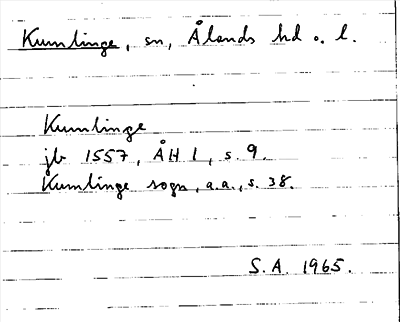 Kumlinge, sn, Ålands hd o. l.
Kumlinge
jb 1557, ÅH 1, s. 9.
Kumlinge sogn, a.a., s. 38.
S.A. 1965.